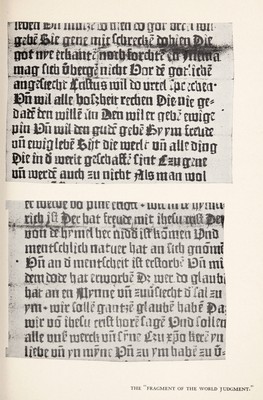 gebē Sie gene mit schrecke dohien Die
got nye erkantē noch forchtē en
mag sich übergē nicht Vor dē gotlichē
angesiechē Cristus wil do urteil sprechen
Vñ wil alle boszheit rechen Die nie ge-
dadē den willē sin Den wil er gebē ewige
pin Vñ wil den gudē gebē By ym freude
vñ ewig lebē Sijt die werlt vñ alle ding
Die in d werlt geschaffē sint Czu gene
vñ werdē auch zu nicht Als man wol
rich ist Der hat freude mit ihesu crist Der
von dē hymel her nidd ist kōmen Vnd
mentschlich natuer hat an sich gnōmē
Vñ an d mentscheit ist erstorbē Vñ mit
dem dode hat erworbē Dz wer do glaubt
hat an en Mynne vñ zuūsiecht d sal zu
ym wir sollē gantzē glaubē habē Da
wir vō ihesu crist horē sagē Vnd sollen
alle unsē werck vñ sīne Czu xpō kerē yn
liebe vñ yn mȳne Vñ zu ym habē zu
THE "FRAGMENT OF THE WORLD JUDGMENT."